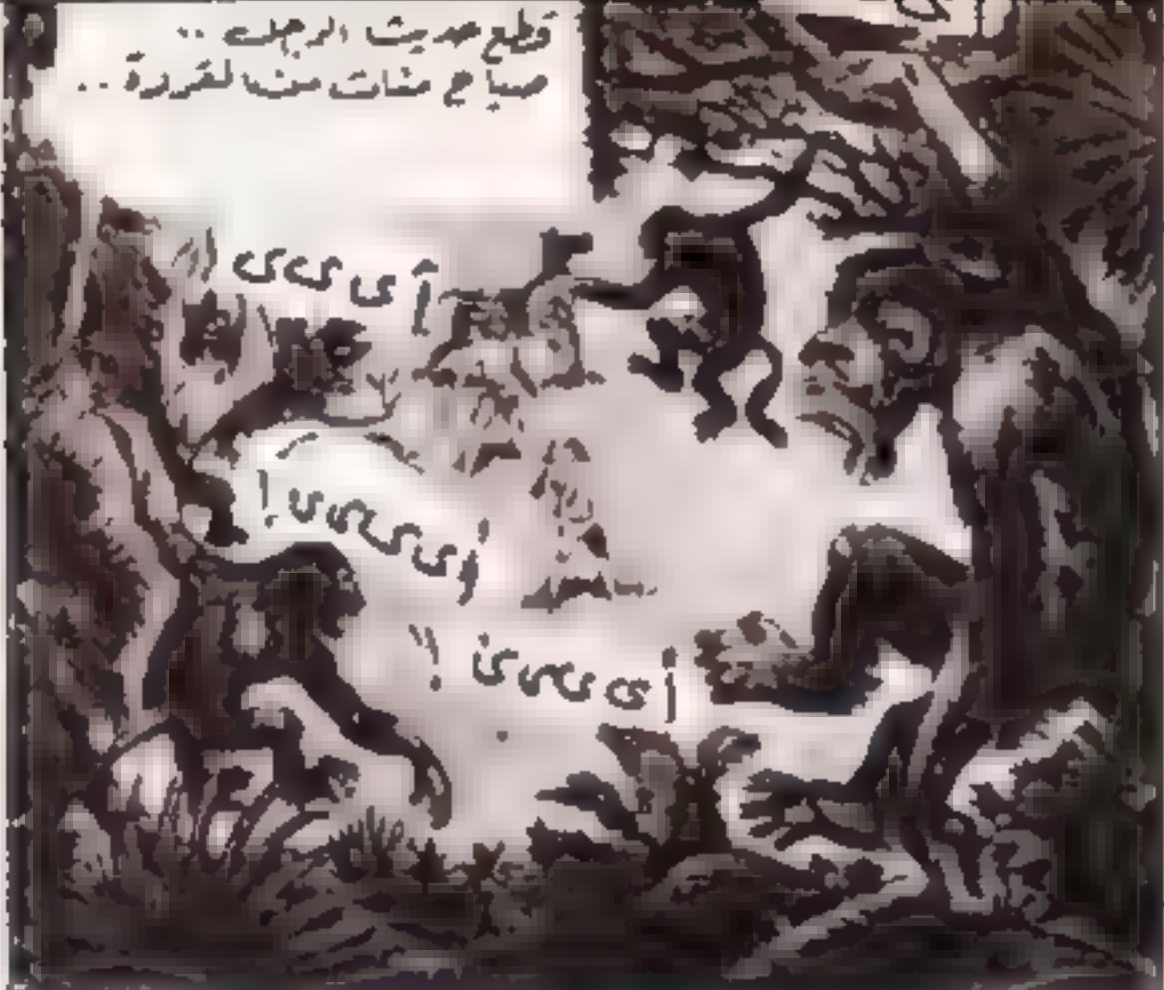 قطع حديث الرجل ..
صياح مئات من القردة ..
آى ى ى !!
أى ى ى ى !
أى ى ى ى !!